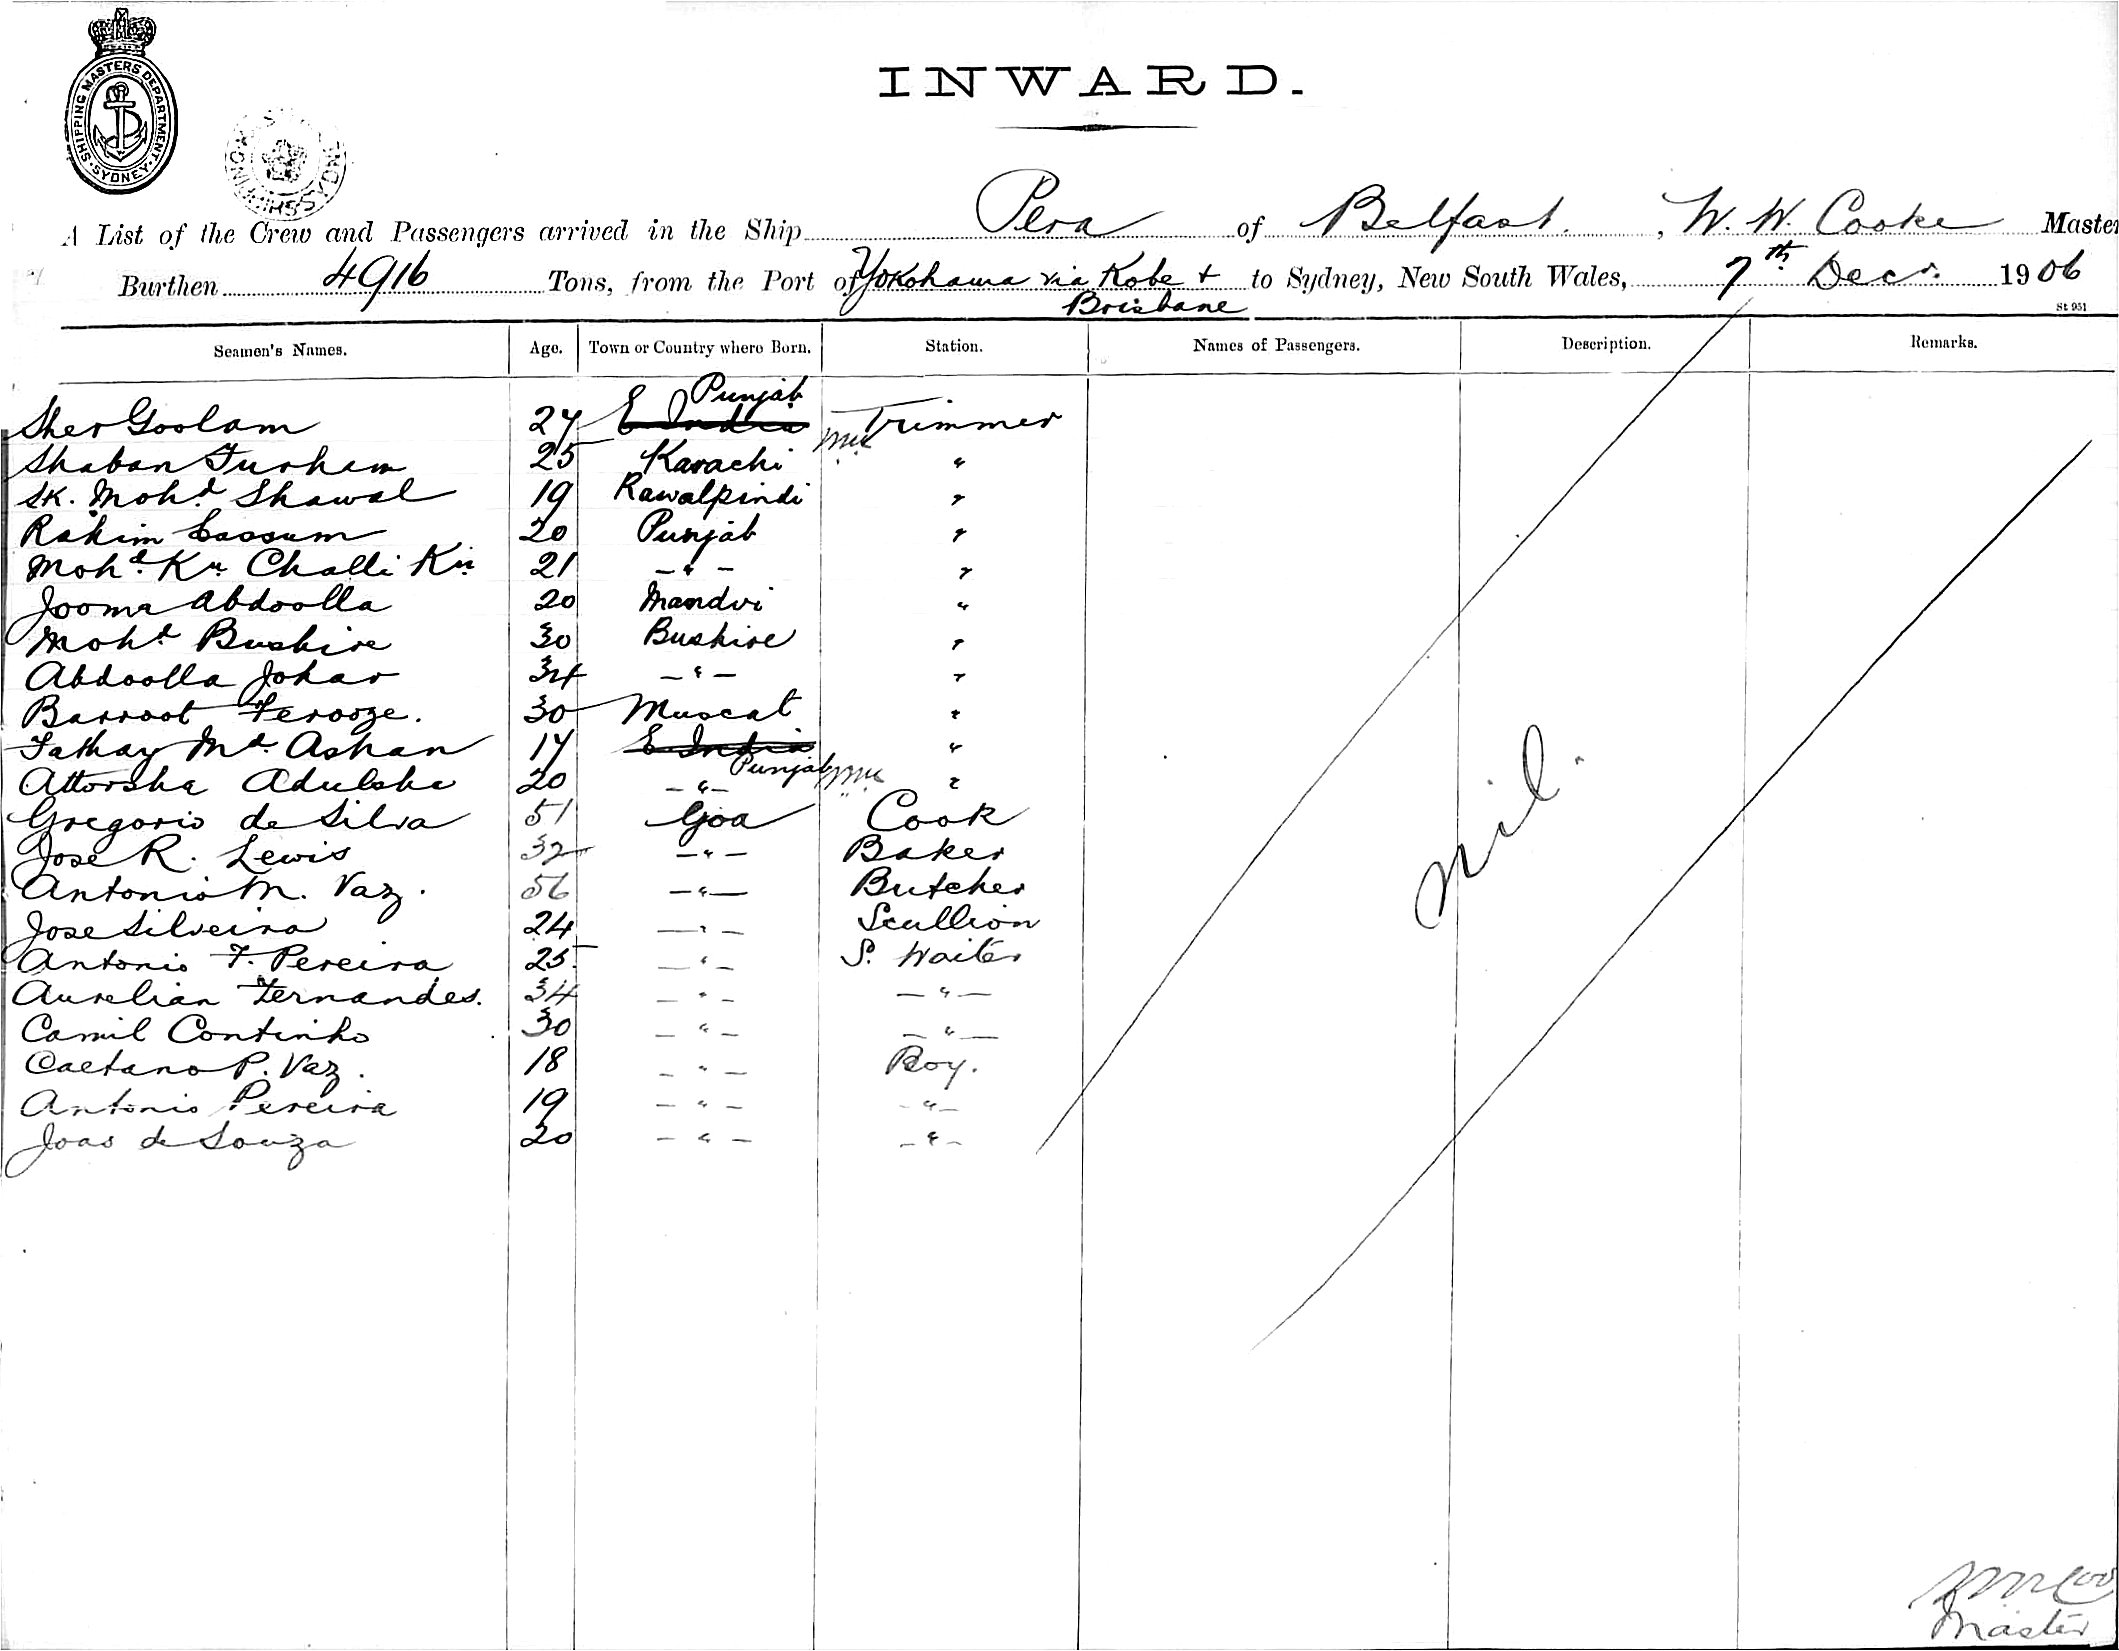 SHIPPING MASTERS DEPARTMENT · SYDNEY
INWARD.
A List of the Crew and Passengers arrived in the Ship Pera of Belfast. , W. W. Cooke Master
Burthen 4916 Tons, from the Port of Yokohama via Kobe + to Sydney, New South Wales, 7th Decr. 1906
Brisbane
St 951
Seamen's Names. Age. Town or Country where Born. Station. Names of Passengers. Description. Remarks.
Punjab
Sher Goolam 27 E India Trimmer
Shaban Furham 25 Karachi "
Sk. Mohd. Shawal 19 Rawalpindi "
Rahim Cassum 20 Punjab "
Mohd. Kn. Challi Kn 21 – " – "
Jooma Abdoolla 20 Mandvi "
Mohd. Bushire 30 Bushire "
Abdoolla Johar 34 – " – "
Barroot Ferooze. 30 Muscat "
Fathay Md. Ashan 17 E India "
Punjab
Attorsha Adulsha 20 – " – "
Gregorio de Silva 51 Goa Cook
Jose R. Lewis 32 – " – Baker
Antonio M. Vaz. 56 – " – Butcher
Jose Silveira 24 – " – Scullion
Antonio F. Pereira 25 – " – S. Waiter
Aurelian Fernandes. 34 – " – – " –
Camil Continho 30 – " – – " –
Caetano P. Vaz. 18 – " – Boy.
Antonio Pereira 19 – " – – " –
Joao de Souza 20 – " – – " –
nil.
Master